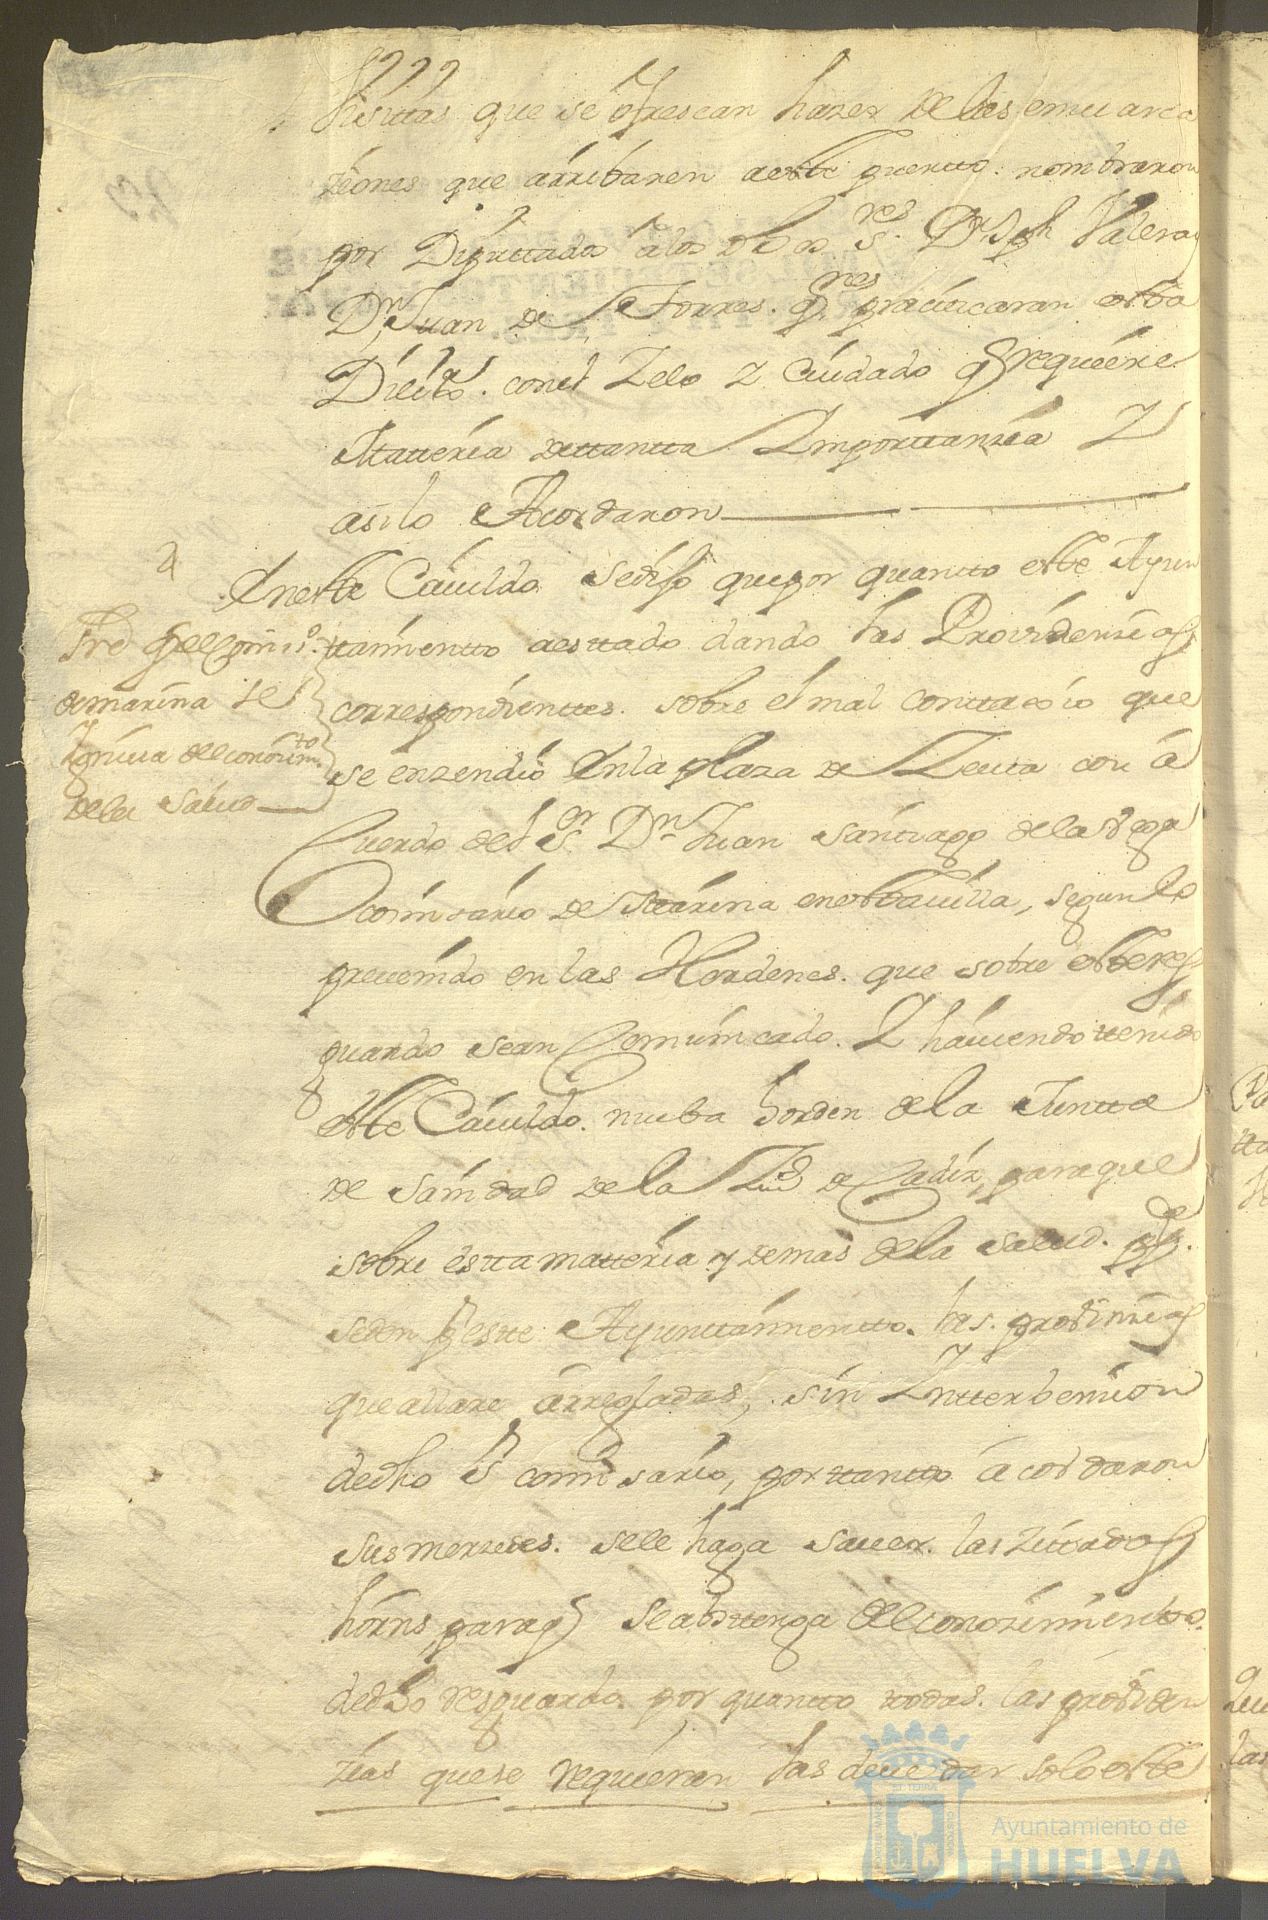 Visittas que se ofrescan hazer de las emuarca
ziones que arribaren a este puertto. nombraron
por Diputtados a los dhos Sres. Dn Jph Valera y
Dn Juan de Torres. qnes practticaran esta
Dilixa. con el Zelo y Cuidado q requiere
Matteria de ttantta Importtanzia Y
asi lo Acordaron
En este Cauildo se dijo que por quantto este Ayun
ttamientto a esttado dando las Providenzias
correspondienttes. sobre el mal conttaxio que
se enzendio En la plaza de Zeuta con a
Cuerdo del Sor. Dn Juan Santtiago de la Vega
Comisario de Marina en esta uilla, segun lo
preuenido en las Hordenes. que sobre este res
guardo se an Comunicado. Y hauiendo ttenido
este Cauildo. nueba horden de la Juntta
de Sanidad de la Ziud de Cadiz, para que
sobre estta matteria y demas de la Salud. pca.
se den pr este Ayunttamientto. las. probidenzias
que allare arregladas, sin Intterbenzion
de dho Sr comisario, por ttantto acordaron
sus merzedes. se le haga sauer. las zittadas
horns, para q se abstenga del conozimientto
de dho resguardo por quantto ttodas. las probiden
zias que se requieran las deue dar solo este
Que el comiso.
de marina se
inhiua del conozimto
de la Salud
Ayuntamiento de
HUELVA